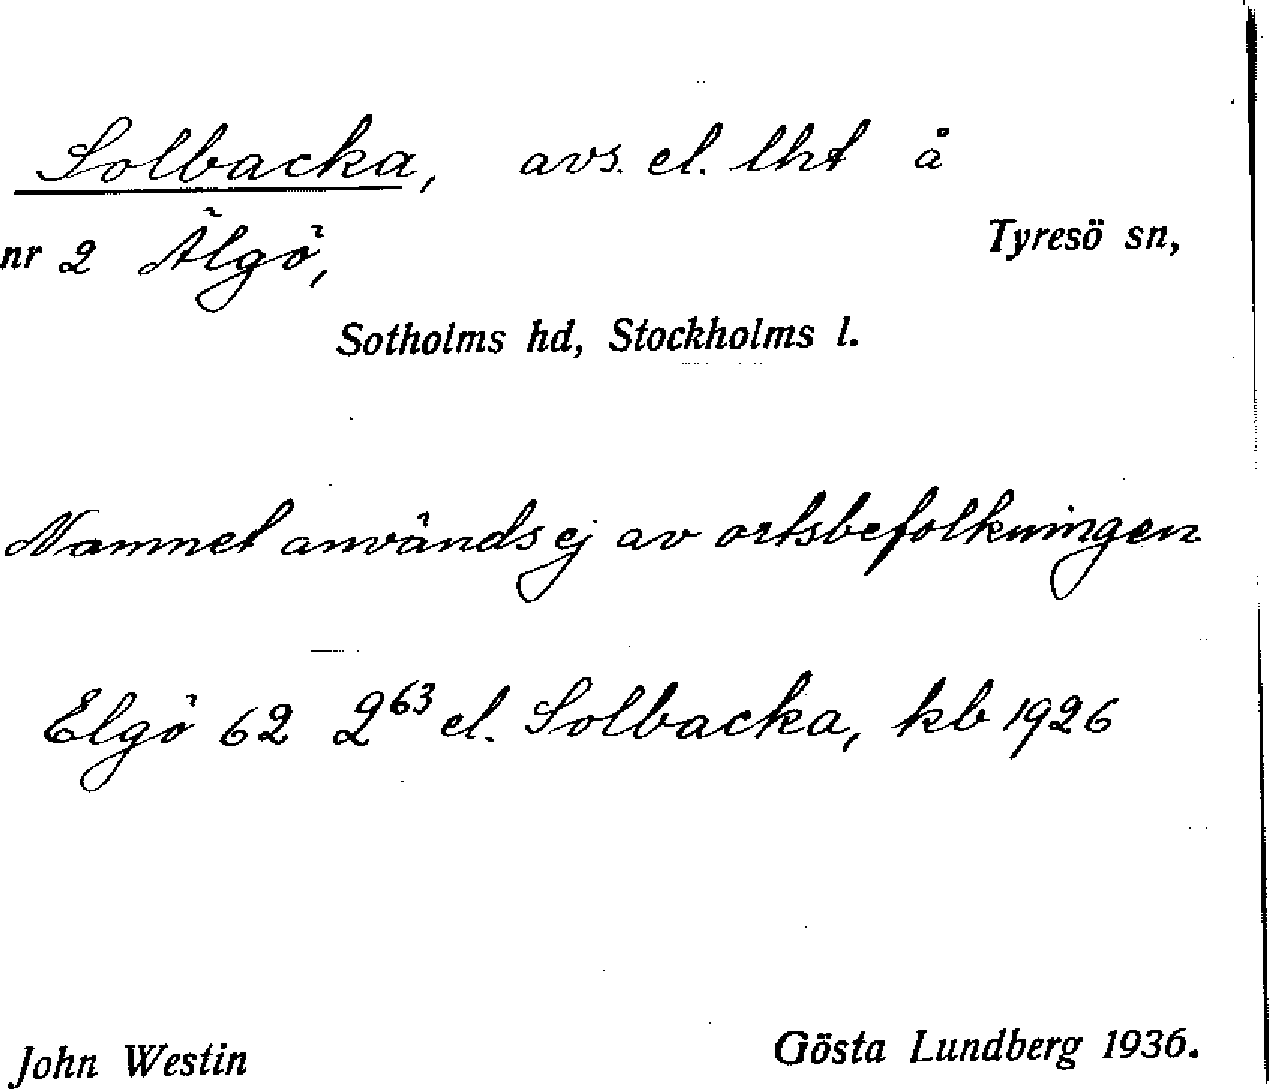 Solbacka, avs. el. lht å
nr 2 Älgö, Tyresö sn,
Sotholms hd, Stockholms l.
Namnet användes ej av ortsbefolkningen
Elgö 62 2⁶³ el. Solbacka, kb 1926
John Westin Gösta Lundberg 1936.